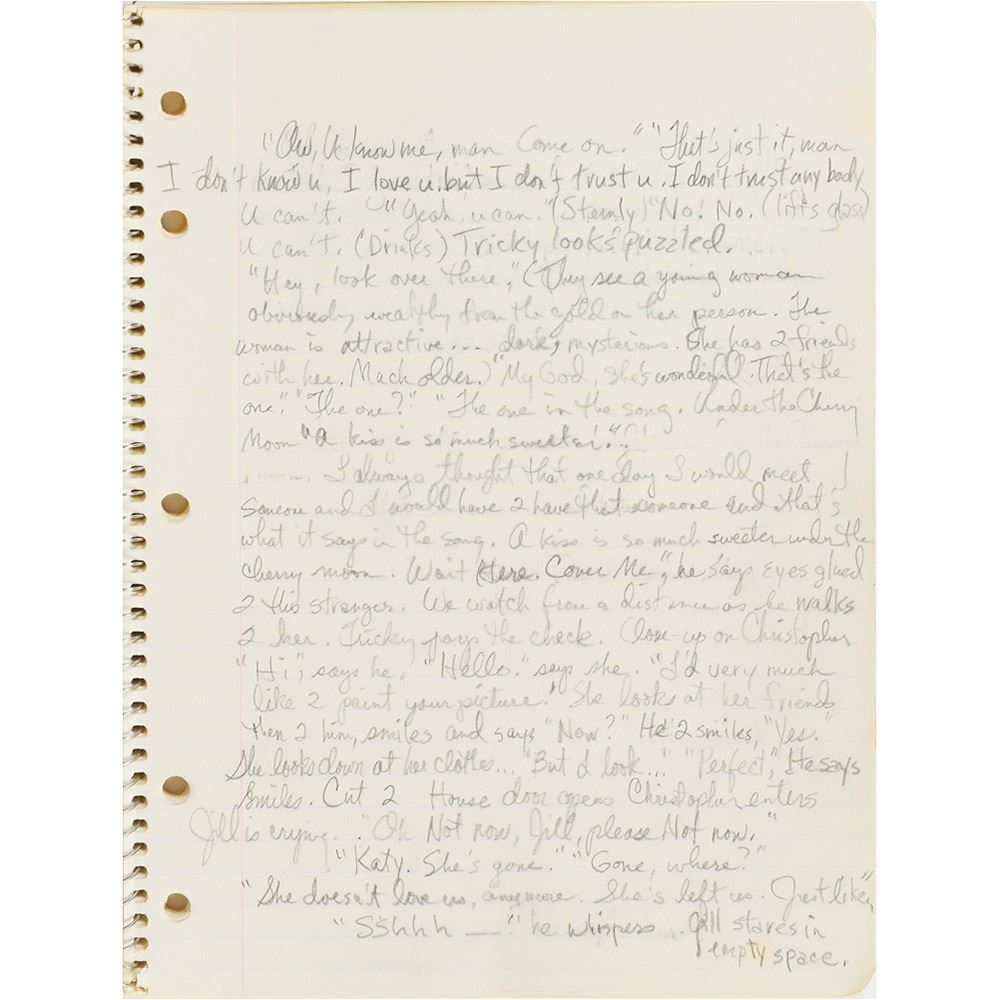 "Aw, U know me, man Come on." "That's just it, man
I don't know u, I love u but I don't trust u. I don't trust any body
U can't. "Yeah, u can." (Sternly) "No! No. (lifts glass)
U can't. (Drinks) Tricky looks puzzled.
"Hey, look over there", (They see a young woman
obviously wealthy from the gold on her person. The
woman is attractive... dark, mysterious. She has 2 friends
with her. Much older.) "My God, she's wonderful. That's the
one". "The one?" "The one in the song. Under the Cherry
Moon "A kiss is so much sweeter."
I always thought that one day I would meet
someone and I would have 2 have that someone and that's
what it says in the song. A kiss is so much sweeter under the
cherry moon. Wait Here. Cover Me", he says Eyes glued
2 this stranger. We watch from a distance as he walks
2 her. Tricky pays the check. Close-up on Christopher
"Hi", says he. "Hello." says she. "I'd very much
like 2 paint your picture." She looks at her friends
then 2 him, smiles and says "Now?" He 2 smiles, "Yes."
She looks down at her clothes... "But I look..." "Perfect", He says
Smiles. Cut 2 House door opens Christopher enters
Jill is crying. "Oh Not now, Jill, please Not now."
"Katy. She's gone." "Gone, where?"
"She doesn't love us, anymore. She's left us. Just like"
"Sshhh —" he whispers. Jill stares in
empty space.